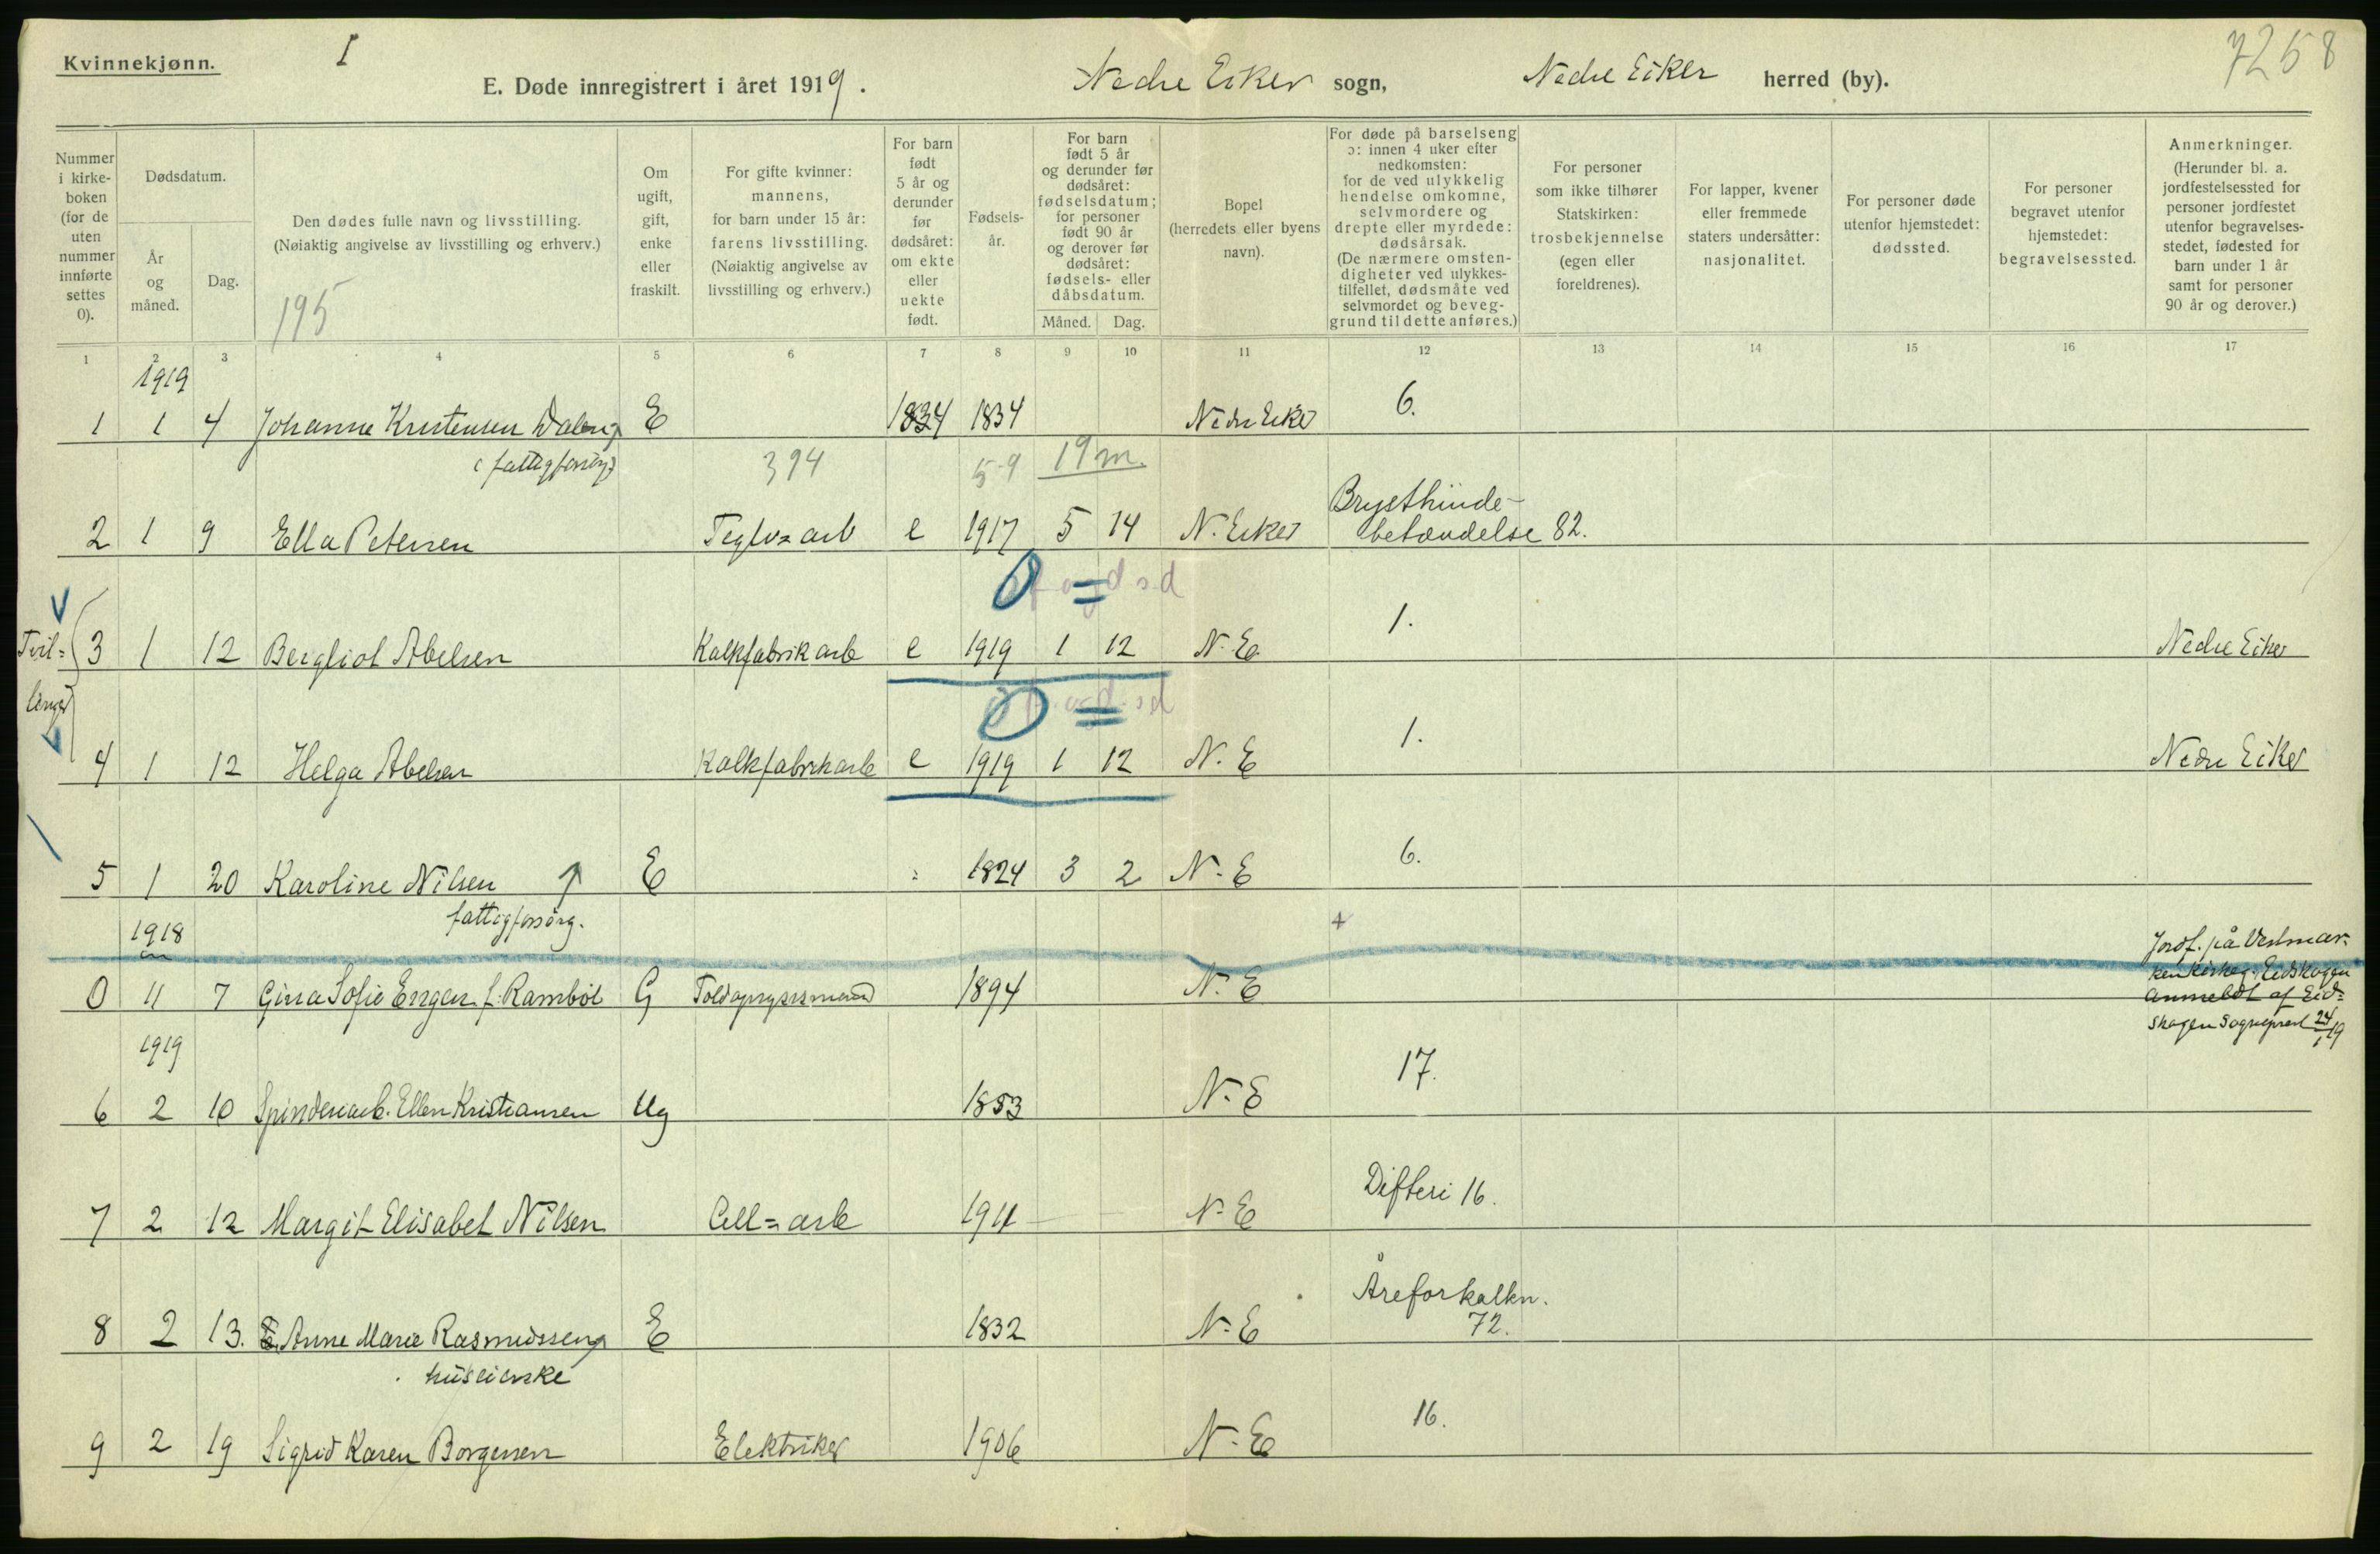 Kvinnekjønn.
I
E. Døde innregistrert i året 1919. Nedre Eiker sogn, Nedre Eiker herred (by).
7258
Nummer i kirkeboken (for de uten nummer innførte settes 0).
Dødsdatum.
År og måned.
Dag.
Den dødes fulle navn og livsstilling.
(Nøiaktig angivelse av livsstilling og erhverv.)
195
Om ugift, gift, enke eller fraskilt.
For gifte kvinner: mannens, for barn under 15 år: farens livsstilling. (Nøiaktig angivelse av livsstilling og erhverv.)
For barn født 5 år og derunder før dødsåret: om ekte eller uekte født.
Fødsels-år.
For barn født 5 år og derunder før dødsåret: fødselsdatum; for personer født 90 år og derover før dødsåret: fødsels- eller dåbsdatum.
Måned. Dag.
Bopel (herredets eller byens navn).
For døde på barselseng ɔ: innen 4 uker efter nedkomsten: for de ved ulykkelig hendelse omkomne, selvmordere og drepte eller myrdede: dødsårsak. (De nærmere omstendigheter ved ulykkestilfellet, dødsmåte ved selvmordet og beveggrund til dette anføres.)
For personer som ikke tilhører Statskirken: trosbekjennelse (egen eller foreldrenes).
For lapper, kvener eller fremmede staters undersåtter: nasjonalitet.
For personer døde utenfor hjemstedet: dødssted.
For personer begravet utenfor hjemstedet: begravelsessted.
Anmerkninger. (Herunder bl. a. jordfestelsessted for personer jordfestet utenfor begravelsesstedet, fødested for barn under 1 år samt for personer 90 år og derover.)
1 2 3 4 5 6 7 8 9 10 11 12 13 14 15 16 17
1919
1 1 4 Johanne Kristensen Dalen E 1834 1834 Nedre Eiker 6.
(fattigforsørg.) 394 5-9 19 m.
2 1 9 Ella Petersen Teglv=arb e 1917 5 14 N. Eiker Brysthinde-
betændelse 82.
Tvil=
3 1 12 Bergliot Abelsen Kalkfabrikarb e 1919 1 12 N. E. 1. Nedre Eiker
linger
4 1 12 Helga Abelsen Kalkfabrikarb e 1919 1 12 N. E 1. Nedre Eiker
5 1 20 Karoline Nilsen E 1824 3 2 N. E 6.
fattigforsørg.
1918
0 11 7 Gina Sofie Engen f. Rambøl G 1894 N. E
Jordf. på Vestmar-
ken kirkeg. Eidskogen
anmeldt af Eid=
skogen sogneprest 24/1 19
1919
6 2 10 Spinderiarb. Ellen Kristiansen Ug 1853 N. E 17.
7 2 12 Margit Elisabet Nilsen Cell=arb 1911 N. E Difteri 16.
8 2 13. Anne Marie Rasmussen E 1832 N. E Åreforkalkn.
72.
huseierske
9 2 19 Sigrid Karen Borgersen Elektriker 1906 N. E 16.